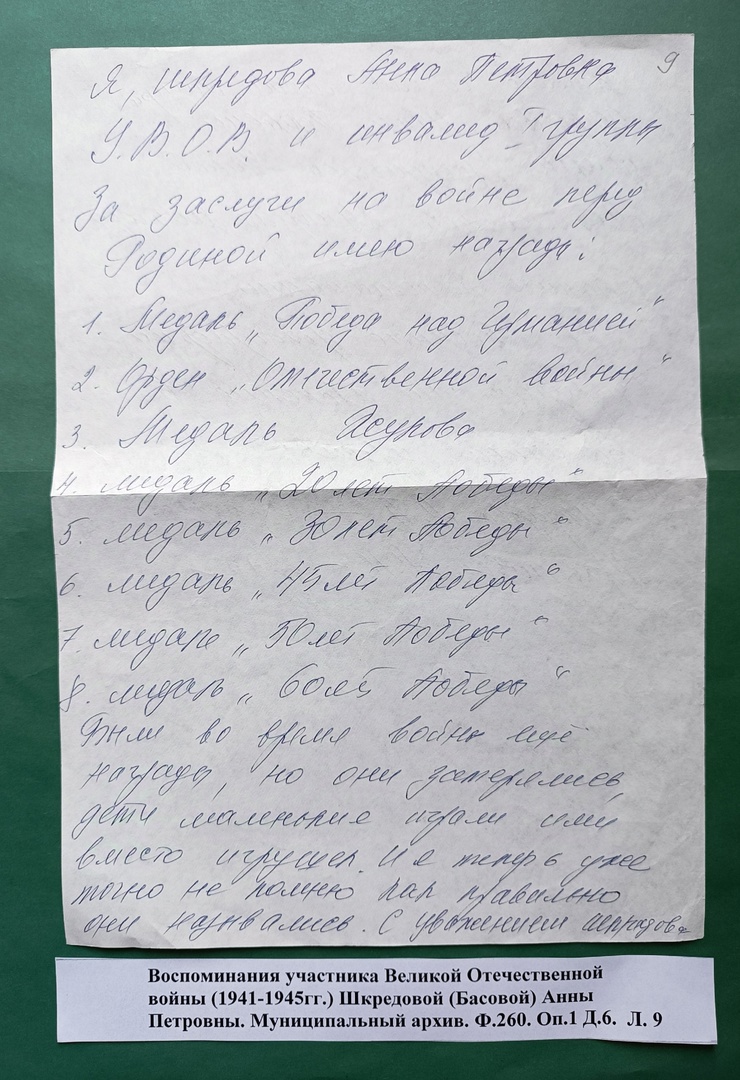 9
Я, Шкредова Анна Петровна
У.В.О.В. и инвалид I группы
За заслуги на войне перед
Родиной имею награды:
1. Медаль „Победа над Германией"
2. Орден „Отечественной войны"
3. Медаль Жукова
4. медаль „20 лет Победы"
5. медаль „30 лет Победы"
6. медаль „45 лет Победы"
7. медаль „50 лет Победы"
8. медаль „60 лет Победы"
Были во время войны ещё
награды, но они затерялись,
дети маленькие играли ими
вместо игрушек. И я теперь уже
точно не помню как правильно
они назывались. С уважением Шкредова
Воспоминания участника Великой Отечественной
войны (1941-1945гг.) Шкредовой (Басовой) Анны
Петровны. Муниципальный архив. Ф.260. Оп.1 Д.6. Л. 9